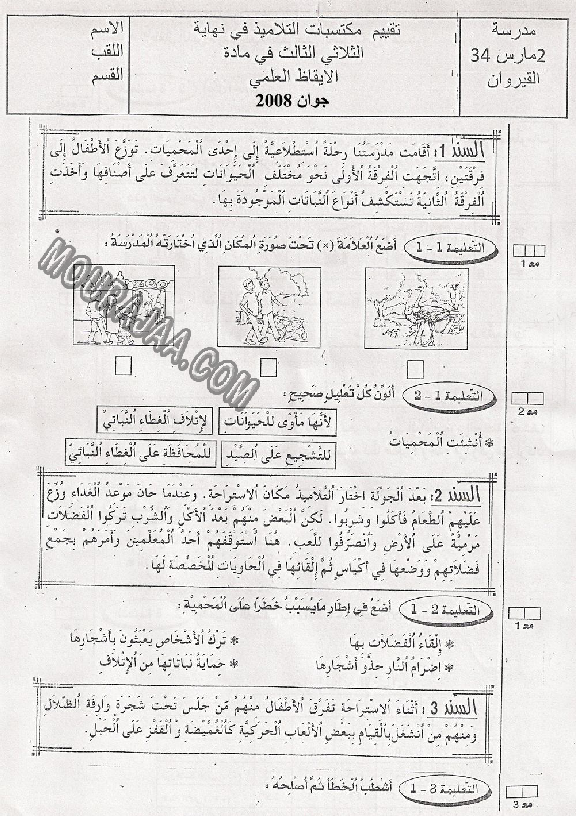 مدرسة
2مارس 34
القيروان
تقييم مكتسبات التلاميذ في نهاية
الثلاثي الثالث في مادة
الايقاظ العلمي
جوان 2008
الاسم
اللقب
القسم
السند 1: أقامت مدرستنا رحلة استطلاعية إلى إحدى المحميات. توزع الأطفال إلى
فرقتين: اتجهت الفرقة الأولى نحو مختلف الحيوانات لتتعرف على أصنافها وأخذت
الفرقة الثانية تستكشف أنواع النباتات الموجودة بها.
التعليمة 1 - 1 أضع العلامة (×) تحت صورة المكان الذي اختارته المدرسة:
مع 1
MOURAJAA.COM
التعليمة 1 - 2 ألون كل تعليل صحيح:
مع 2
* أنشئت المحميات
لأنها مأوى للحيوانات
لإتلاف الغطاء النباتي
للتشجيع على الصيد
للمحافظة على الغطاء النباتي
السند 2: بعد الجولة اختار التلاميذ مكان الاستراحة. وعندما حان موعد الغداء وزع
عليهم الطعام فأكلوا وشربوا. لكن البعض منهم بعد الأكل والشرب تركوا الفضلات
مرمية على الأرض وانصرفوا للعب. هنا استوقفهم أحد المعلمين وأمرهم بجمع
فضلاتهم ووضعها في أكياس ثم إلقائها في الحاويات المخصصة لها.
التعليمة 2 - 1 أضع في إطار ما يسبب خطرا على المحمية:
مع 1
* إلقاء الفضلات بها
* ترك الأشخاص يعبثون بأشجارها
* إضرام النار حذو أشجارها
* حماية نباتاتها من الإتلاف
السند 3: أثناء الاستراحة تفرق الأطفال منهم من جلس تحت شجرة وارفة الظلال
ومنهم من انشغل بالقيام ببعض الألعاب الحركية كالغميضة و القفز على الحبل.
التعليمة 3 - 1 أشطب الخطأ ثم أصلحه:
مع 3